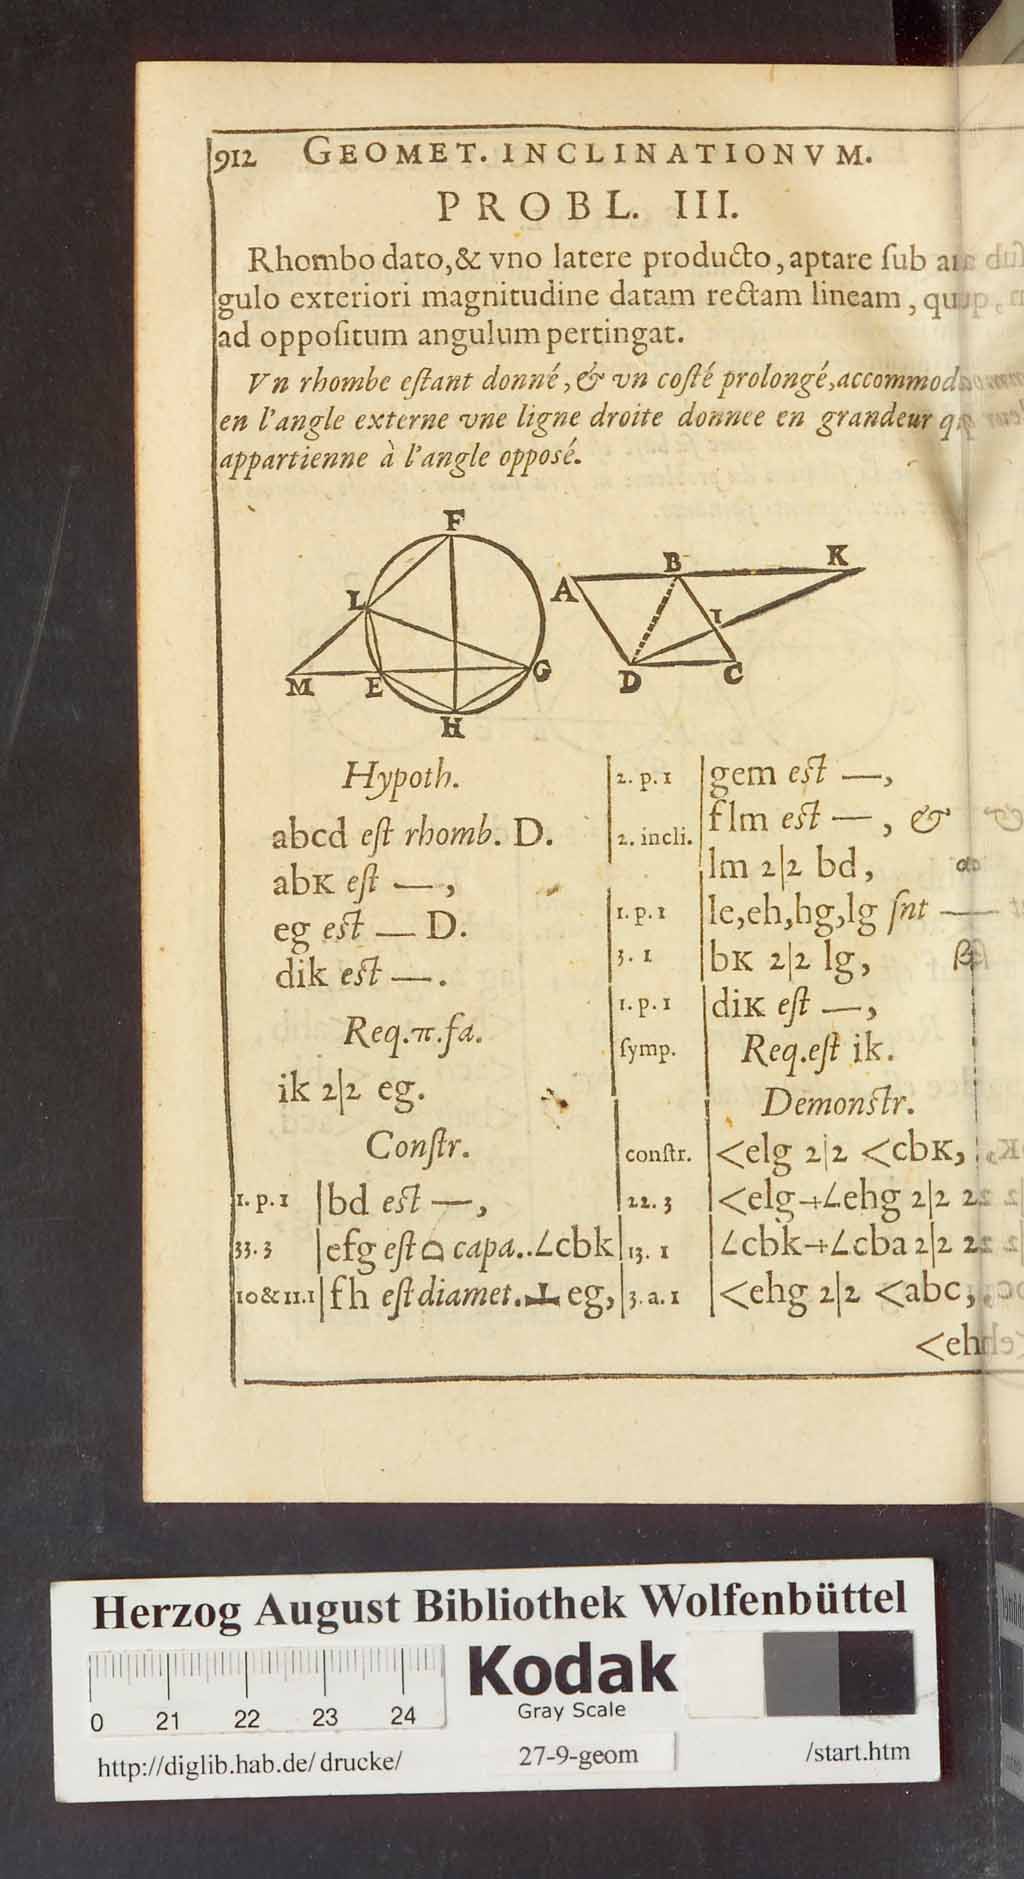 912 GEOMET. INCLINATIONVM.
PROBL. III.
Rhombo dato, & vno latere producto, aptare ſub
gulo exteriori magnitudine datam rectam lineam,
ad oppoſitum angulum pertingat.
Vn rhombe eſtant donné, & vn coſté prolongé, accommod
en l'angle externe vne ligne droite donnee en grandeur
appartienne à l'angle opposé.
F
L
M E G
H
A B K
I
D C
Hypoth.
abcd eſt rhomb. D.
abK eſt —,
eg eſt — D.
dik eſt —.
Req.π.fa.
ik 2|2 eg.
Conſtr.
1. p. 1 | bd eſt —,
33. 3 | efg eſt ⌓ capa..∠cbk
10&11.1 | fh eſt diamet. ⊥ eg,
2. p. 1 | gem eſt —,
2. incli. | flm eſt —, &
lm 2|2 bd, α
1. p. 1 | le,eh,hg,lg ſnt —
3. 1 | bK 2|2 lg, β
1. p. 1 | diK eſt —,
ſymp. | Req.eſt ik.
Demonſtr.
conſtr. | <elg 2|2 <cbK,
22. 3 | <elg+∠ehg 2|2
13. 1 | ∠cbk+∠cba 2|2
3. a. 1 | <ehg 2|2 <abc,
<eh
Herzog August Bibliothek Wolfenbüttel
Kodak
Gray Scale
0 21 22 23 24
http://diglib.hab.de/drucke/ 27-9-geom /start.htm